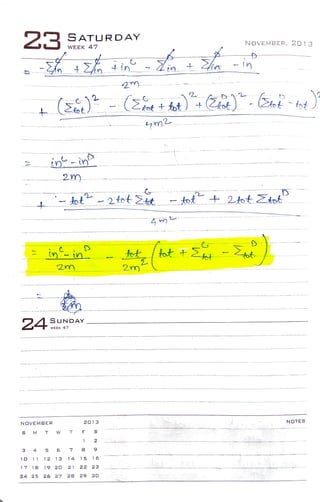 23 SATURDAY
WEEK 47
NOVEMBER, 2013
= -Σin + Σin + in^C - Σin + Σin - in^D
2m
+ (Σtot^C)² - (Σtot^C + tot)² + (Σtot^D)² - (Σtot^D - tot)²
4m²
= in^C - in^D
2m
+ - tot² - 2tot Σtot^C - tot² + 2tot Σtot^D
4m²
= in^C - in^D - tot (tot + Σtot^C - Σtot^D)
2m 2m²
=
24 SUNDAY
WEEK 47
NOVEMBER 2013
S M T W T F S
1 2
3 4 5 6 7 8 9
10 11 12 13 14 15 16
17 18 19 20 21 22 23
24 25 26 27 28 29 30
NOTES